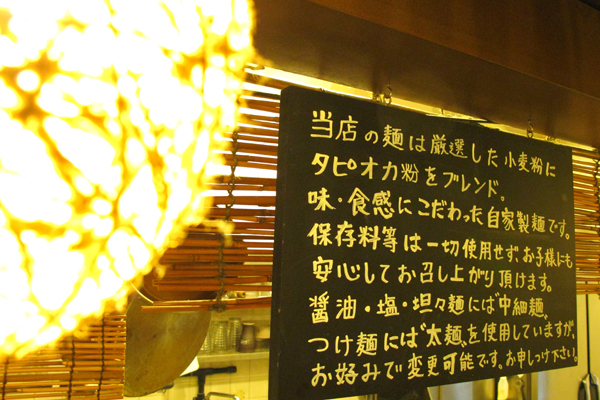 当店の麺は厳選した小麦粉に
タピオカ粉をブレンド。
味・食感にこだわった自家製麺です。
保存料等は一切使用せず、お子様にも
安心してお召し上がり頂けます。
醤油・塩・坦々麺には"中細麺"、
つけ麺には"太麺"を使用していますが、
お好みで変更可能です。お申しつけ下さい。